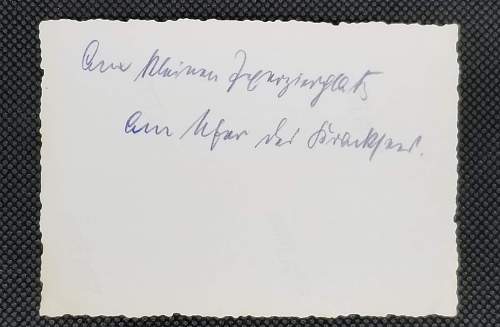 Am kleinen Exerzierplatz
Am Ufer des